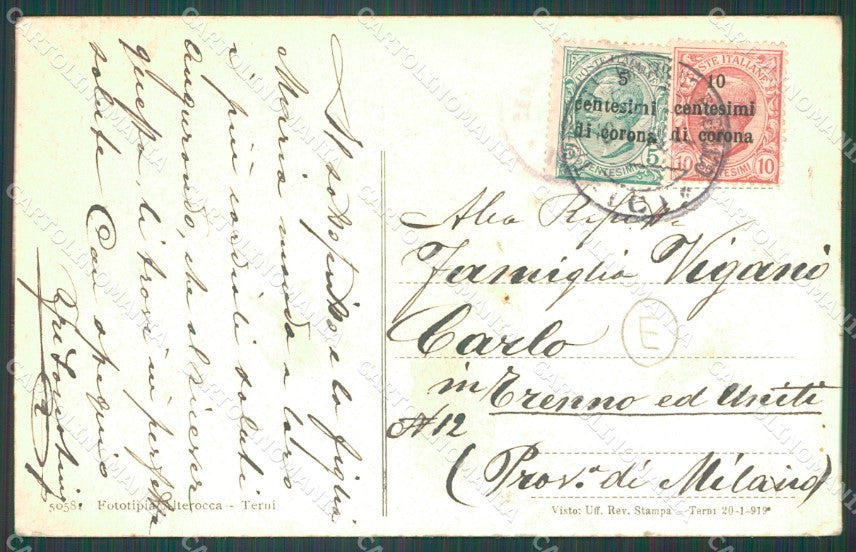 Il sottoscritto e la figlia
Maria manda a loro
i più cordiali saluti
Augurando, che al ricever
questa, li trovi in perfetta
salute Con ossequio
5058. Fototipia Alterocca - Terni
POSTE ITALIANE
5
centesimi
di corona
5
CENTESIMI
POSTE ITALIANE
10
centesimi
di corona
10 CENTESIMI 10
Alla
Famiglia Viganò
Carlo
in Trenno ed Uniti
N 12
(Prov.a di Milano)
E
Visto: Uff. Rev. Stampa - Terni 20-1-919
CARTOLINOMANIA